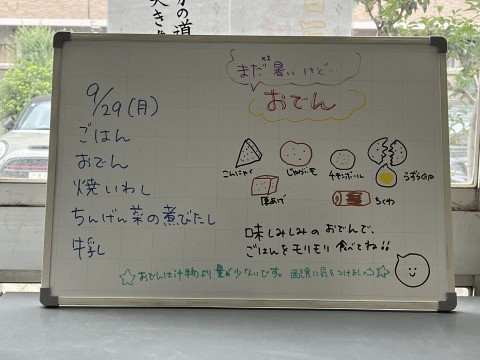 9/29(月)
ごはん
おでん
焼いわし
ちんげん菜の煮びたし
牛乳
まだ暑いけど…
おでん
こんにゃく
じゃがいも
チキンボール
うずら
厚あげ
ちくわ
味しみしみのおでんで、
ごはんをモリモリ食べてね!!
おでんは汁物より量が少ないです。配食に気をつけましょう
の道
大き